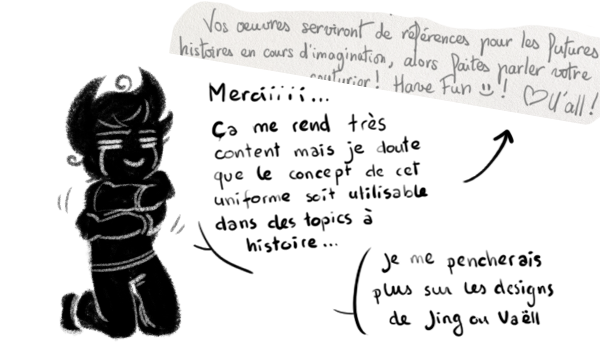 Vos oeuvres serviront de références pour les futures
histoires en cours d'imagination, alors faites parler votre
couturier! Have Fun !! ♡ U'all!
Merciiiii...
Ça me rend très
content mais je doute
que le concept de cet
uniforme soit utilisable
dans des topics à
histoire...
Je me pencherais
plus sur les designs
de Jing ou Vaëll